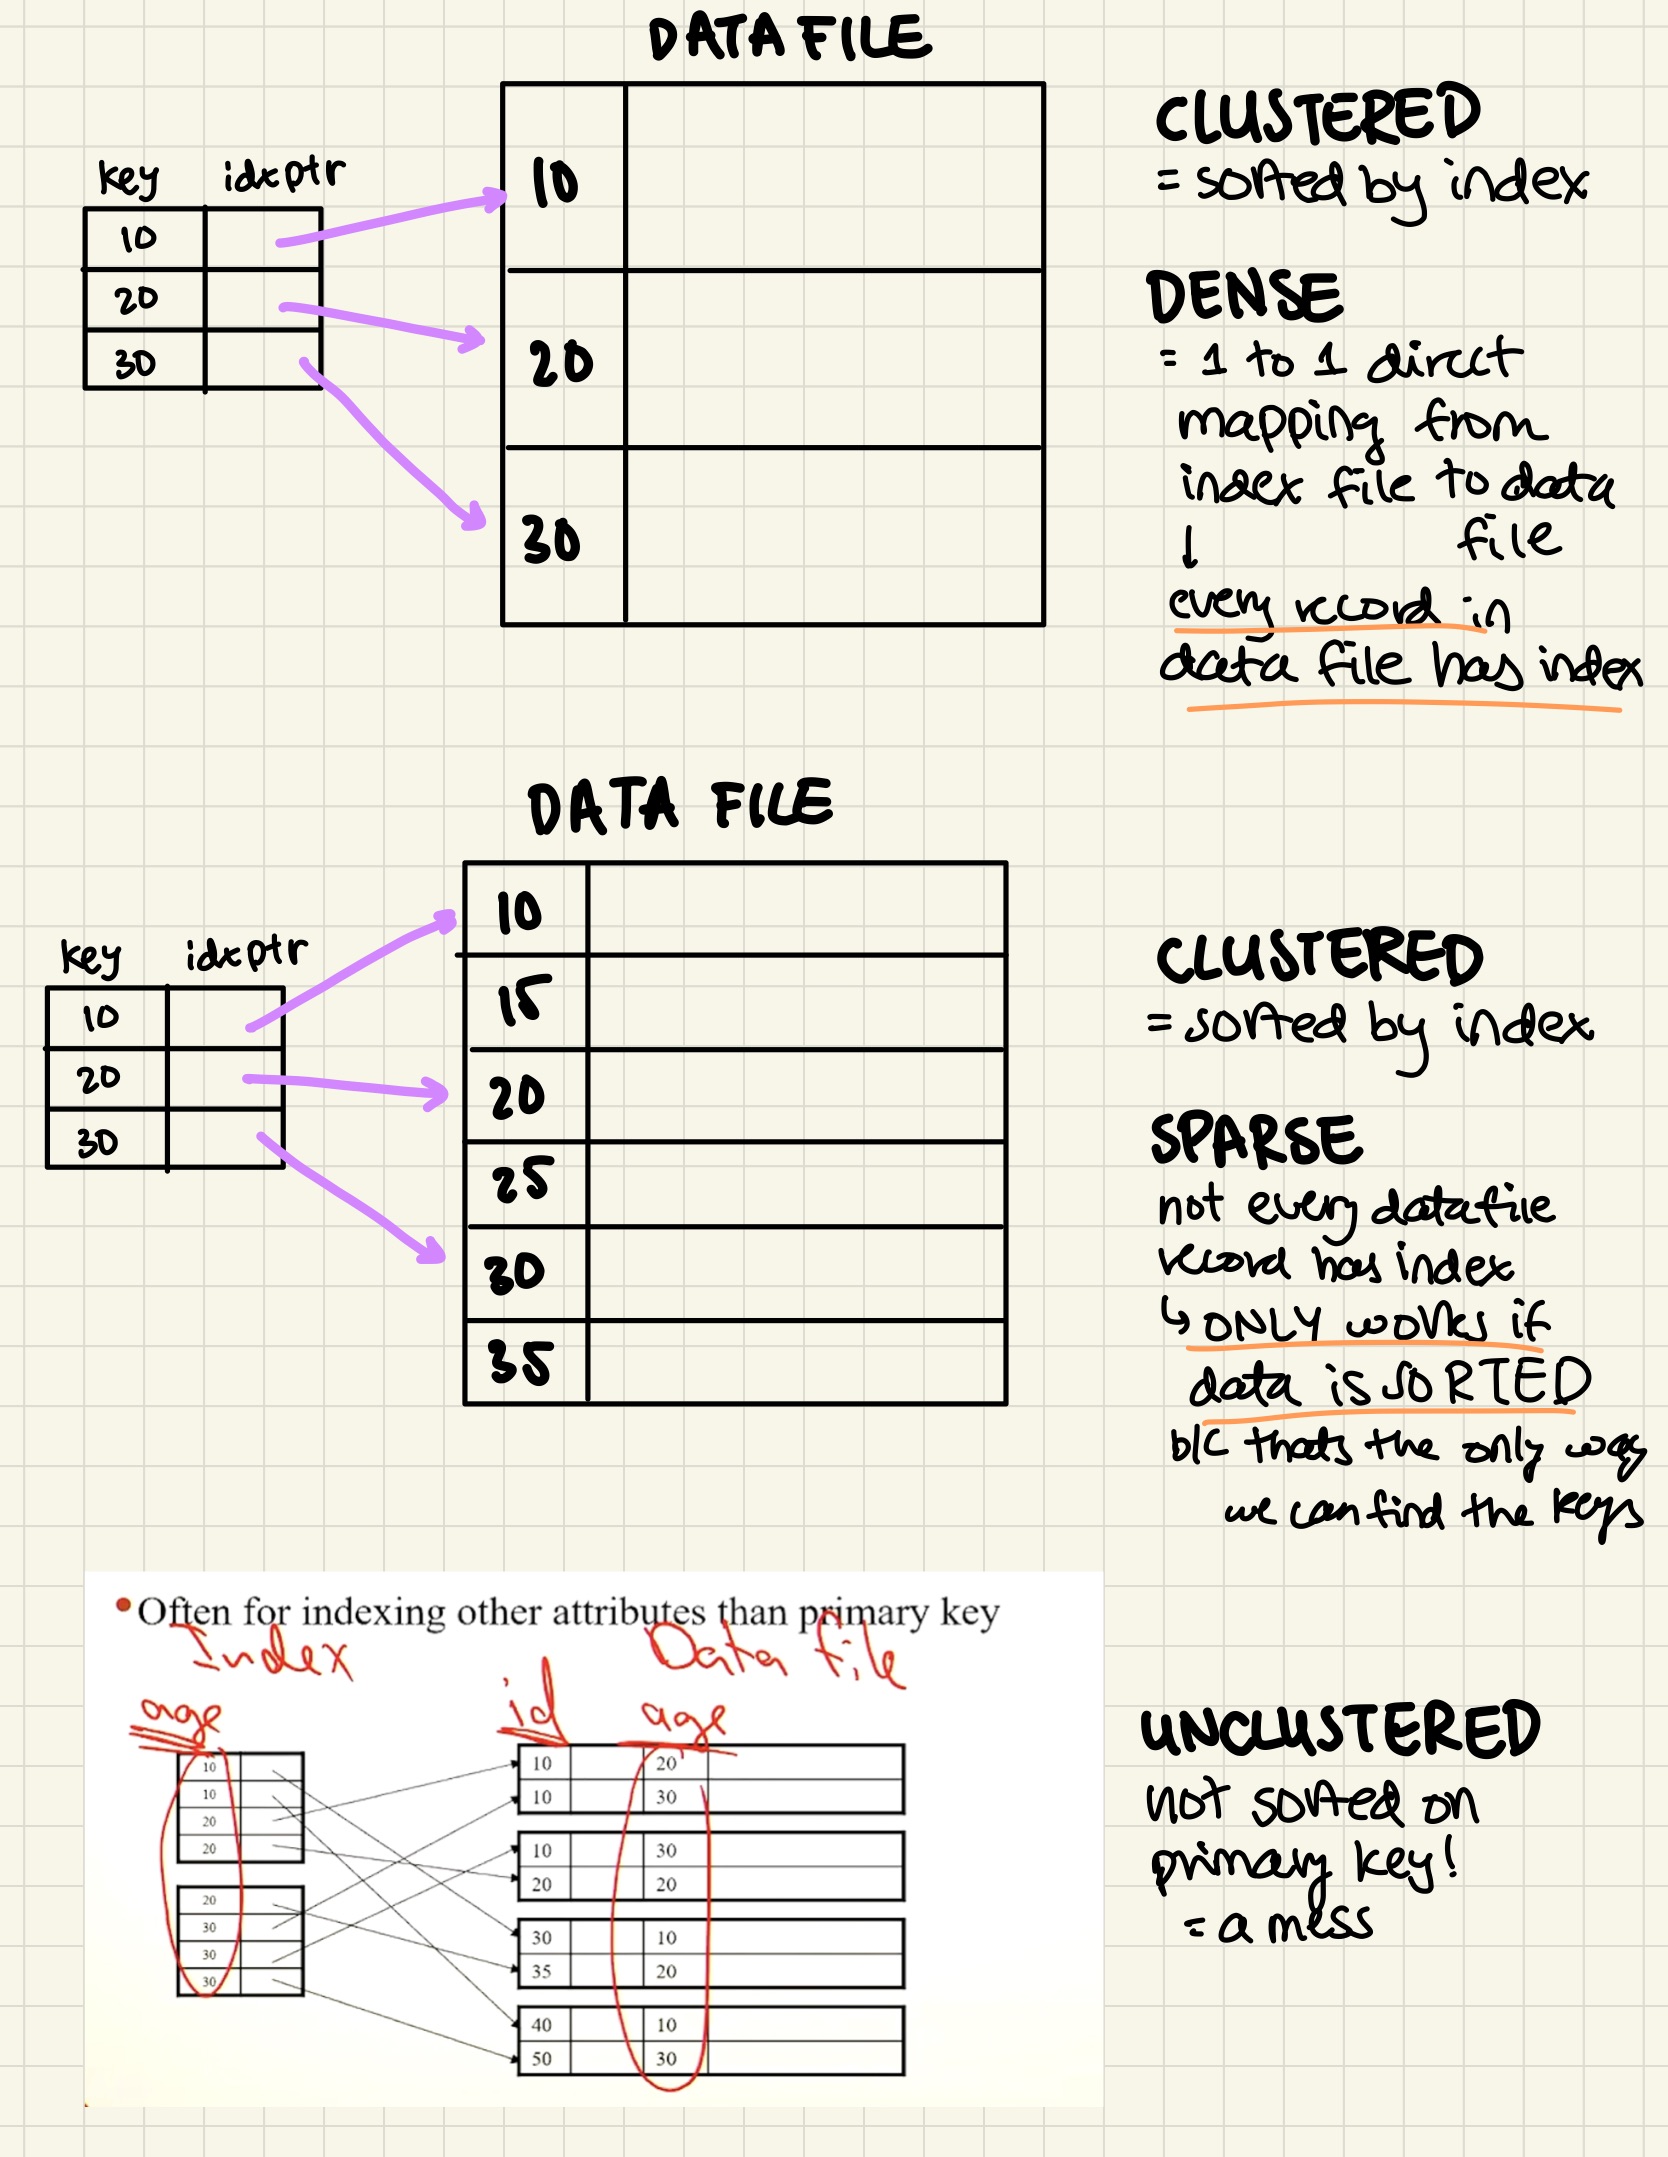 DATA FILE
key idxptr
10
20
30
10
20
30
CLUSTERED
= sorted by index
DENSE
= 1 to 1 direct
mapping from
index file to data
file
↓
every record in
data file has index
DATA FILE
key idxptr
10
20
30
10
15
20
25
30
35
CLUSTERED
= sorted by index
SPARSE
not every datafile
record has index
↳ ONLY works if
data is SORTED
b/c thats the only way
we can find the keys
• Often for indexing other attributes than primary key
Index Data file
age id age
10
10
20
20
20
30
30
30
10 20
10 30
10 30
20 20
30 10
35 20
40 10
50 30
UNCLUSTERED
not sorted on
primary key!
= a mess